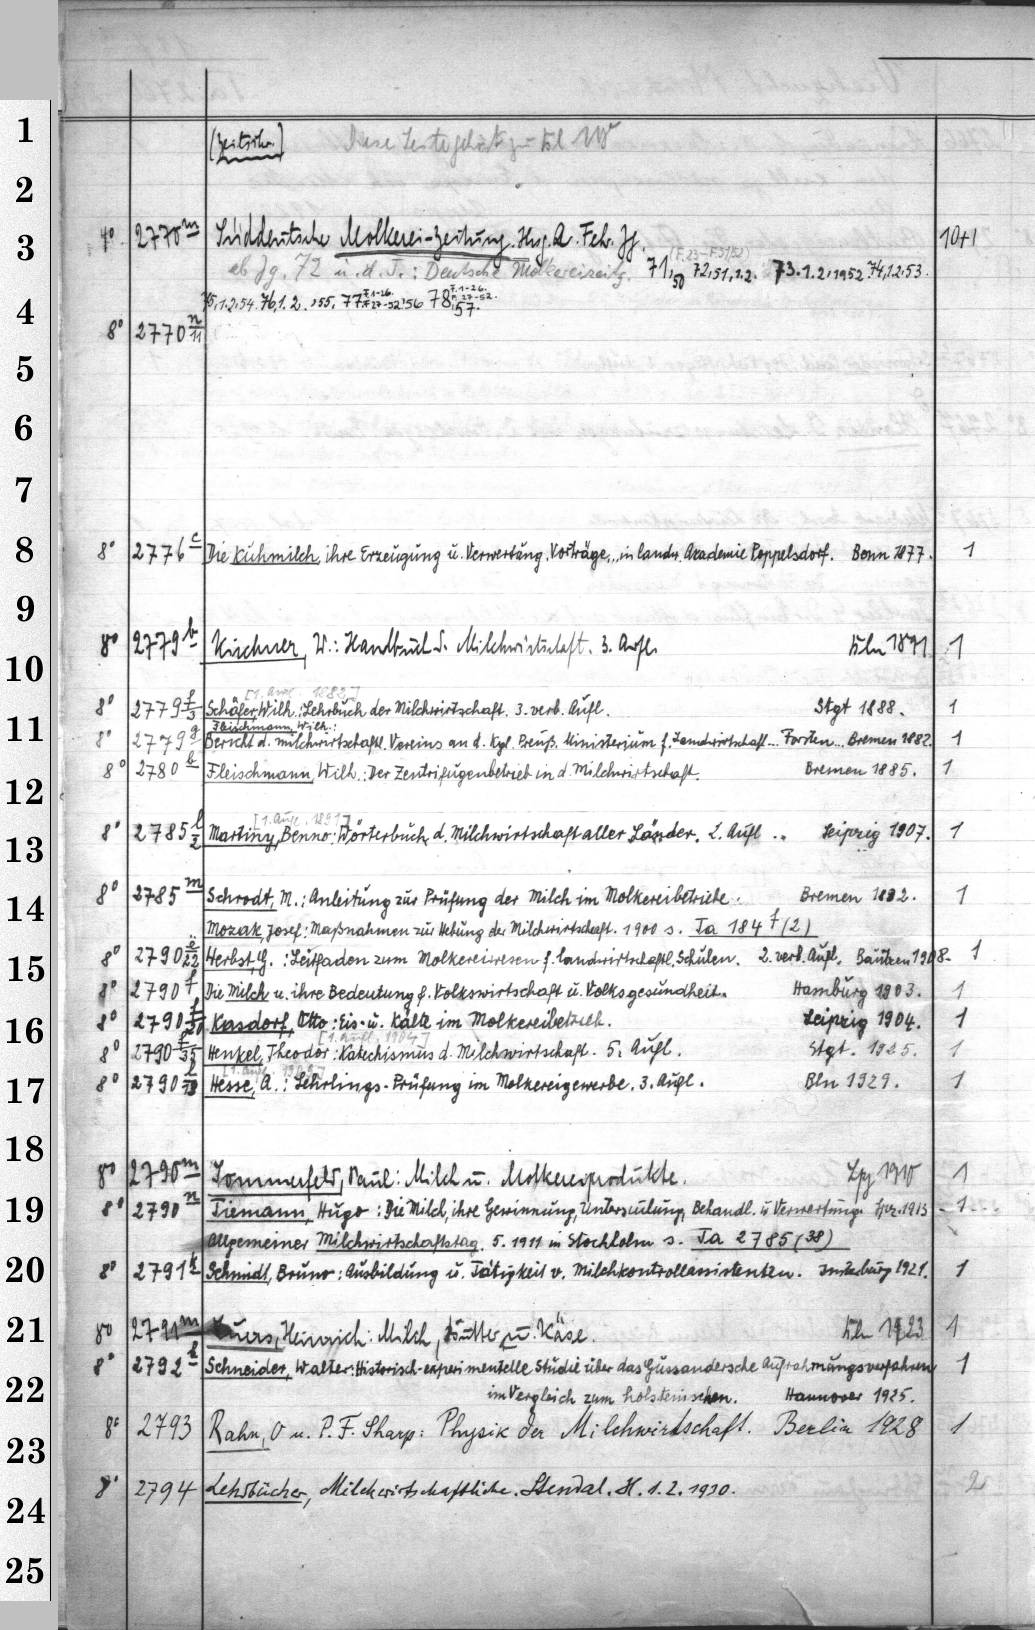 1
[Zeitschr.] Diese Seite gehört zu
2
3
4° 2770 m Süddeutsche Molkerei-Zeitung. Hrsg. A. Feh. Jg. 10+1
ab Jg. 72 u. d. T.: Deutsche Molkereizeitg. 71,50 (F. 23-F. 51/52) 72,51,1.2. 73.1.2,1952 74,1.2.53.
75,1.2.54. 76,1.2.,55. 77 F.1-26. F.27-52,56 78 F.1-26. F.27-52. 57.
4
8° 2770 n/11
5
6
7
8
8° 2776 c Die Kuhmilch, ihre Erzeugung u. Verwertung, Vorträge... in landw. Akademie Poppelsdorf. Bonn 1877. 1
9
8° 2779 b Kirchner, W.: Handbuch d. Milchwirtschaft. 3. Aufl. Bln 1891 1
10
[1. Aufl. 1882]
8° 2779 f/3 Schäfer, Wilh.: Lehrbuch der Milchwirtschaft. 3. verb. Aufl. Stgt 1888. 1
11
Fleischmann, Wilh.:
8° 2779 g Bericht d. milchwirtschaftl. Vereins an d. Kgl. Preuß. Ministerium f. Landwirtschaft... Forsten... Bremen 1882. 1
8° 2780 b Fleischmann, Wilh.: Der Zentrifugenbetrieb in d. Milchwirtschaft. Bremen 1885. 1
12
[1. Aufl. 1891]
8° 2785 l/2 Martiny, Benno: Wörterbuch d. Milchwirtschaft aller Länder. 2. Aufl .. Leipzig 1907. 1
13
8° 2785 m Schrodt, M.: Anleitung zur Prüfung der Milch im Molkereibetriebe. Bremen 1892. 1
14
Mozak, Josef: Maßnahmen zur Hebung der Milchwirtschaft. 1900 s. Ta 184 f (2)
8° 2790 e/22 Herbst, G.: Leitfaden zum Molkereiwesen f. landwirtschaftl. Schulen. 2. verb. Aufl. Bautzen 1908. 1
15
8° 2790 f Die Milch u. ihre Bedeutung f. Volkswirtschaft u. Volksgesundheit. Hamburg 1903. 1
16
8° 2790 f/50 Kasdorf, Otto: Eis- u. Kälte im Molkereibetrieb. Leipzig 1904. 1
[1. Aufl. 1904]
8° 2790 f/55 Henkel, Theodor: Katechismus d. Milchwirtschaft. 5. Aufl. Stgt. 1925. 1
17
8° 2790 Hesse, A.: Lehrlings-Prüfung im Molkereigewerbe. 3. Aufl. Bln 1929. 1
18
8° 2790 m Sommerfeld, Paul: Milch u. Molkereiprodukte. Lpz 1910 1
19
8° 2790 n Tiemann, Hugo: Die Milch, ihre Gewinnung, Untersuchung, Behandl. u Verwertung. Lpz. 1913 1
Allgemeiner Milchwirtschaftstag. 5. 1911 in Stockholm s. Ta 2785 (38)
20
8° 2791 k Schmidt, Bruno: Ausbildung u. Tätigkeit v. Milchkontrollassistenten. Insterburg 1921. 1
21
8° 2791 m Lüers, Heinrich: Milch, Butter u. Käse. Bln 1923 1
8° 2792 b Schneider, Walter: Historisch-experimentelle Studie über das Gussandersche Aufrahmungsverfahren 1
22
im Vergleich zum holsteinischen. Hannover 1925.
8° 2793 Rahn, O u. P. F. Sharp: Physik der Milchwirtschaft. Berlin 1928 1
23
8° 2794 Lehrbücher, Milchwirtschaftliche. Stendal. H. 1. 2. 1930. 2
24
25